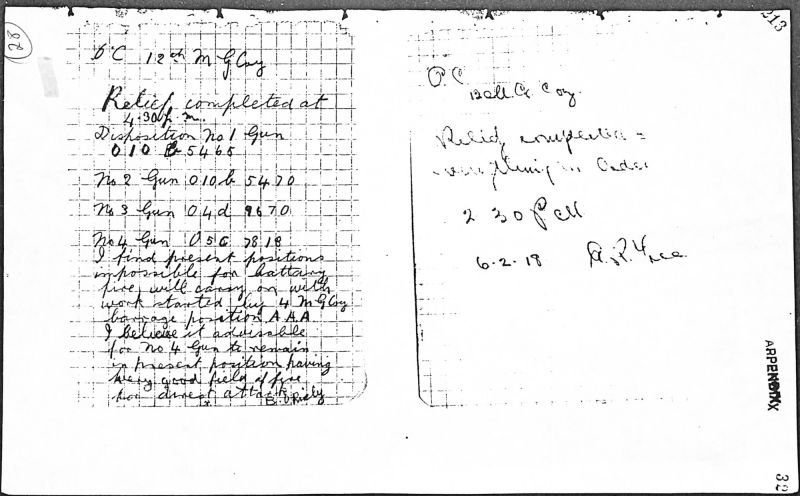 28
O.C 12th M G Coy
Relief completed at
4.30 p.m.
Disposition No 1 Gun
O 10 b 5465
No 2 Gun O 10.b 5470
No 3 Gun O 4 d 9670
No 4 Gun O 5 c 7818
I find present positions
impossible for battery
fire, will carry on with
work started by 4 M G Coy
barrage position A.A.A
I believe it advisable
for No 4 Gun to remain
in present position having
very good field of fire
for direct attack
213
O.C
Coy.
Relief completed
everything in Order
2 30 P
6.2.18
APPENDIX
32